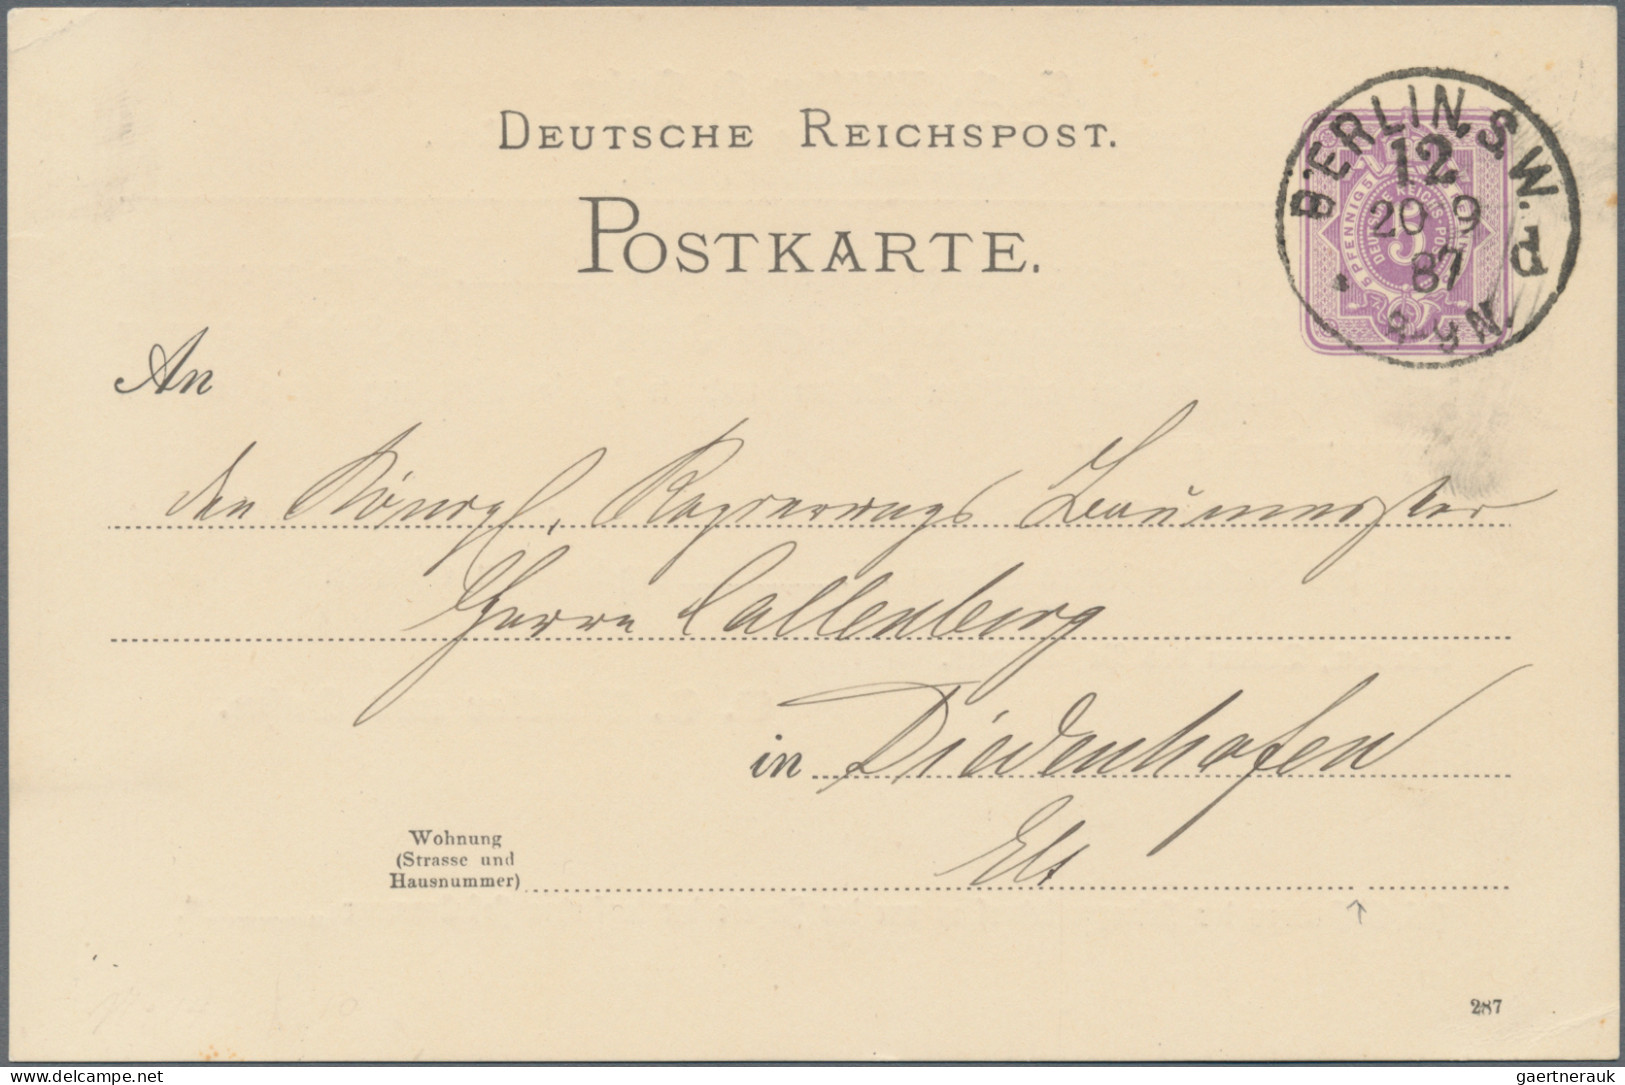 DEUTSCHE REICHSPOST.
POSTKARTE.
BERLIN, S.W.
12
20 9
87
8-9N.
d
5 PFENNIG 5
An
den Königl. Regierungs Baumeister
Herrn Callenberg
in Diedenhofen
Els
Wohnung
(Strasse und
Hausnummer)
287
www.delcampe.net
gaertnerauk